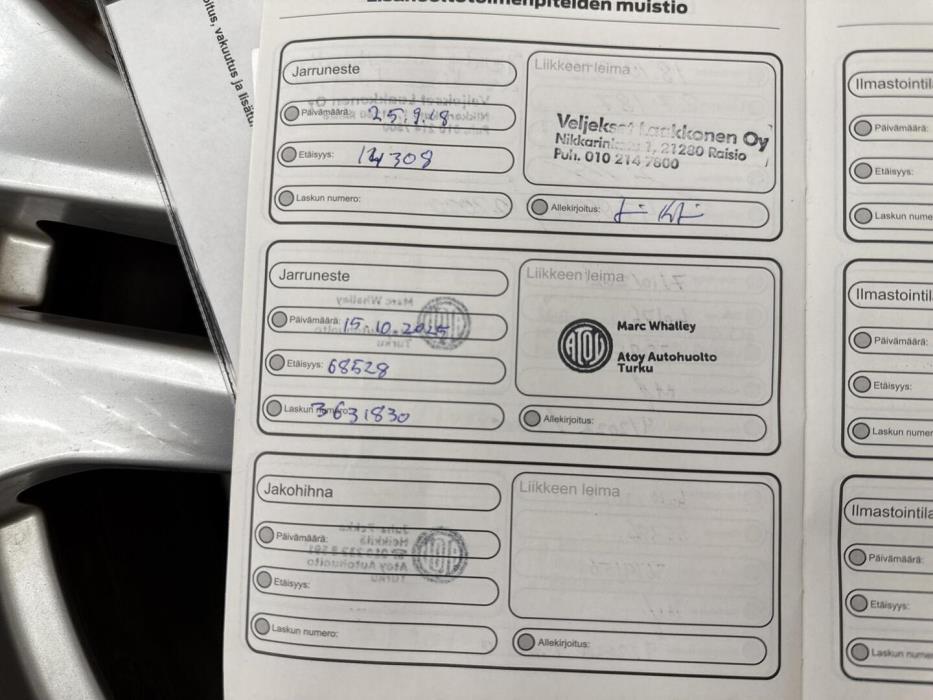 Lisähuoltotoimenpiteiden muistio
oitus, vakuutus ja lisätu
Jarruneste
Päivämäärä: 25.9.18
Etäisyys: 124308
Laskun numero:
Liikkeen leima
Veljekset Laakkonen Oy
1, 21280 Raisio
Puh. 010 214 7800
Allekirjoitus:
Jarruneste
Päivämäärä: 15.10.2025
Etäisyys: 68528
Laskun numero: 3631830
Liikkeen leima
ATOY
Marc Whalley
Atoy Autohuolto
Turku
Allekirjoitus:
Jakohihna
Päivämäärä:
Etäisyys:
Laskun numero:
Liikkeen leima
Allekirjoitus:
Ilmastointil
Päivämäärä:
Etäisyys:
Laskun nume
Ilmastointil
Päivämäärä:
Etäisyys:
Laskun numer
Ilmastointila
Päivämäärä:
Etäisyys:
Laskun nume